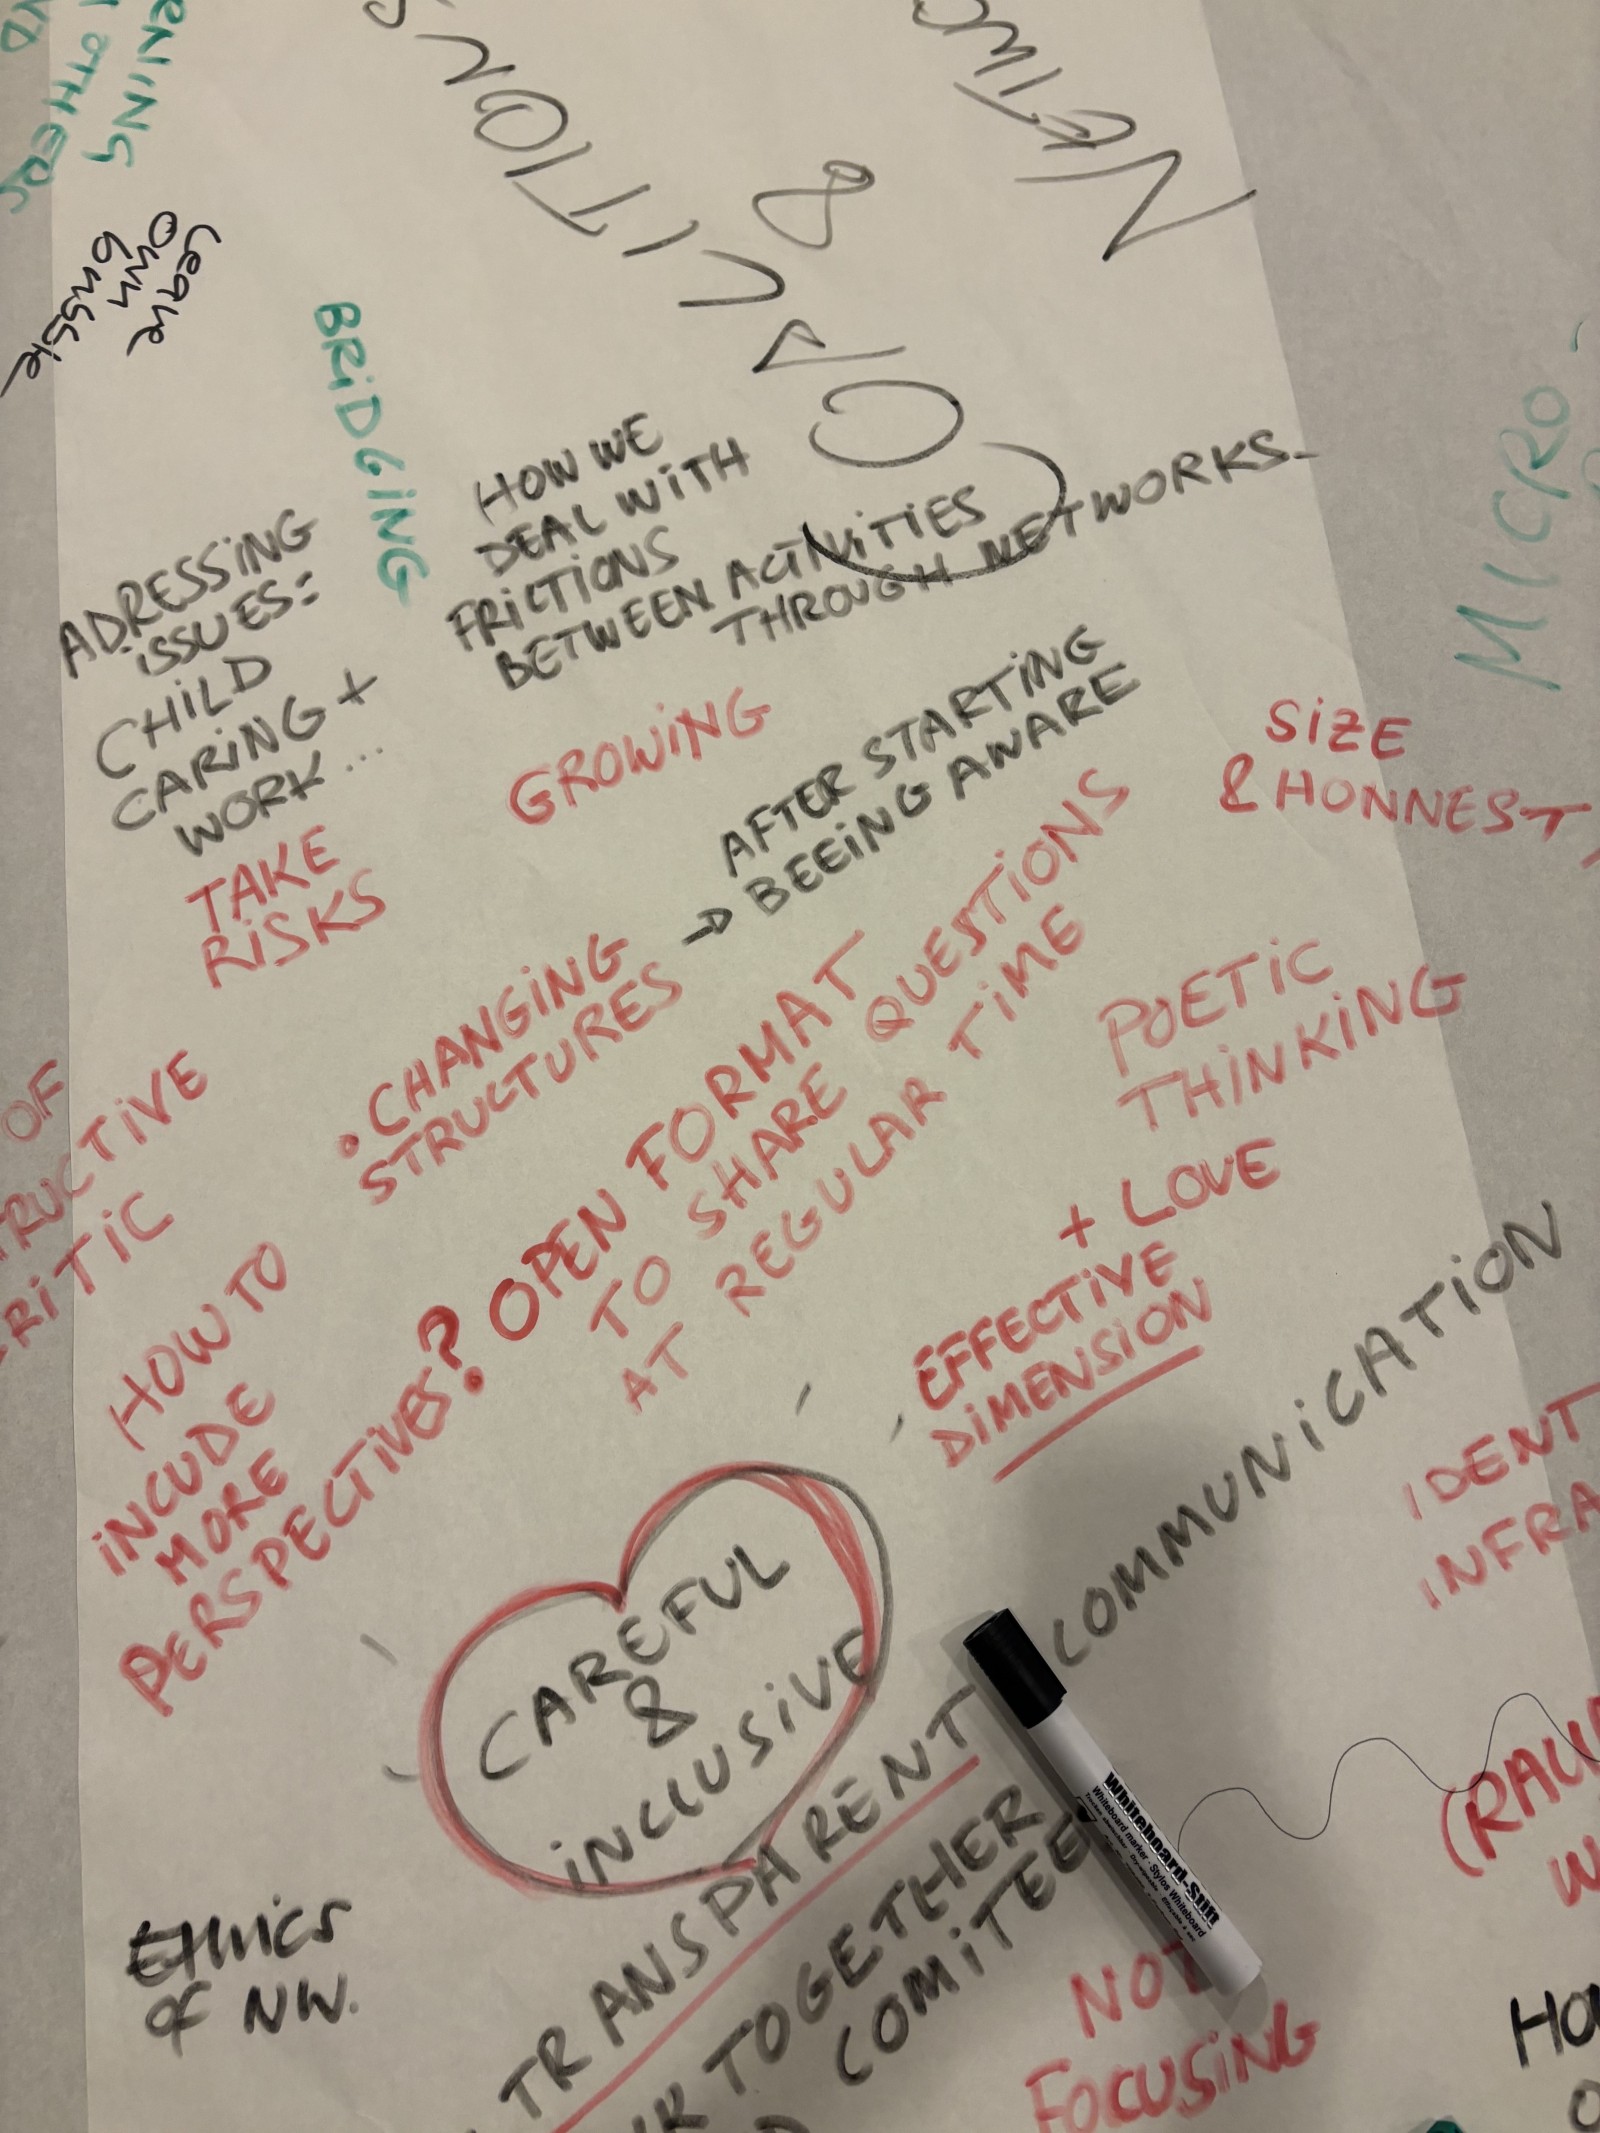 LEAVE
OWN
BUSSLE
BRIDGING
&
HOW WE
DEAL WITH
FRICTIONS
BETWEEN ACTIVITIES
THROUGH NETWORKS
ADRESSING
ISSUES:
CHILD
CARING +
WORK...
MICRO-
GROWING
SIZE
& HONNEST
AFTER STARTING
→ BEEING AWARE
TAKE
RISKS
• CHANGING
STRUCTURES
OPEN FORMAT
TO SHARE QUESTIONS
AT REGULAR TIME
POETIC
THINKING
+ LOVE
EFFECTIVE
DIMENSION
OF
HOW TO
INCUDE
MORE
PERSPECTIVES?
CAREFUL
&
INCLUSIVE
TRANSPARENT COMMUNICATION
TOGETHER
COMITEE
Whiteboard-Stift
Whiteboard marker - Stylos Whiteboard
Ethics
of NW.
NOT
FOCUSING